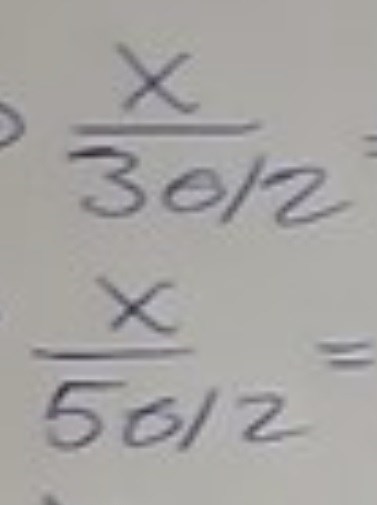 x
30/2 =
x
50/2 =